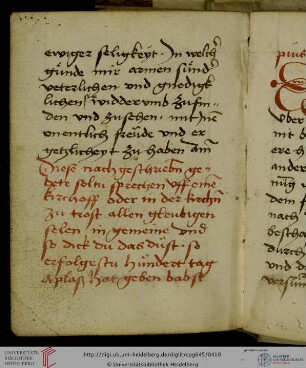 ewiger seligkeyt · In welch
günde mir armen sünd
veterlichen vnd gnedigk
lichen widdervmb zu fin
den vnd zu sehen · mit
onentlich freüde vnd er
getzlicheyt zu haben am
Diese nachgeschriebn ge
bete soltu sprechen vff eine
kirchoff oder in der kirchn
zu trost allen gleubigen
selen in gemeine vnd
so dick du das düst · so
erfolgestu hündert tag
aplaß hat geben babst
pius
vber
mit
ere
ander
dem
nach
bescha
durch
vnd d
versün
http://digi.ub.uni-heidelberg.de/diglit/cpg645/0410
© Universitätsbibliothek Heidelberg
UNIVERSITÄTS-
BIBLIOTHEK
HEIDELBERG